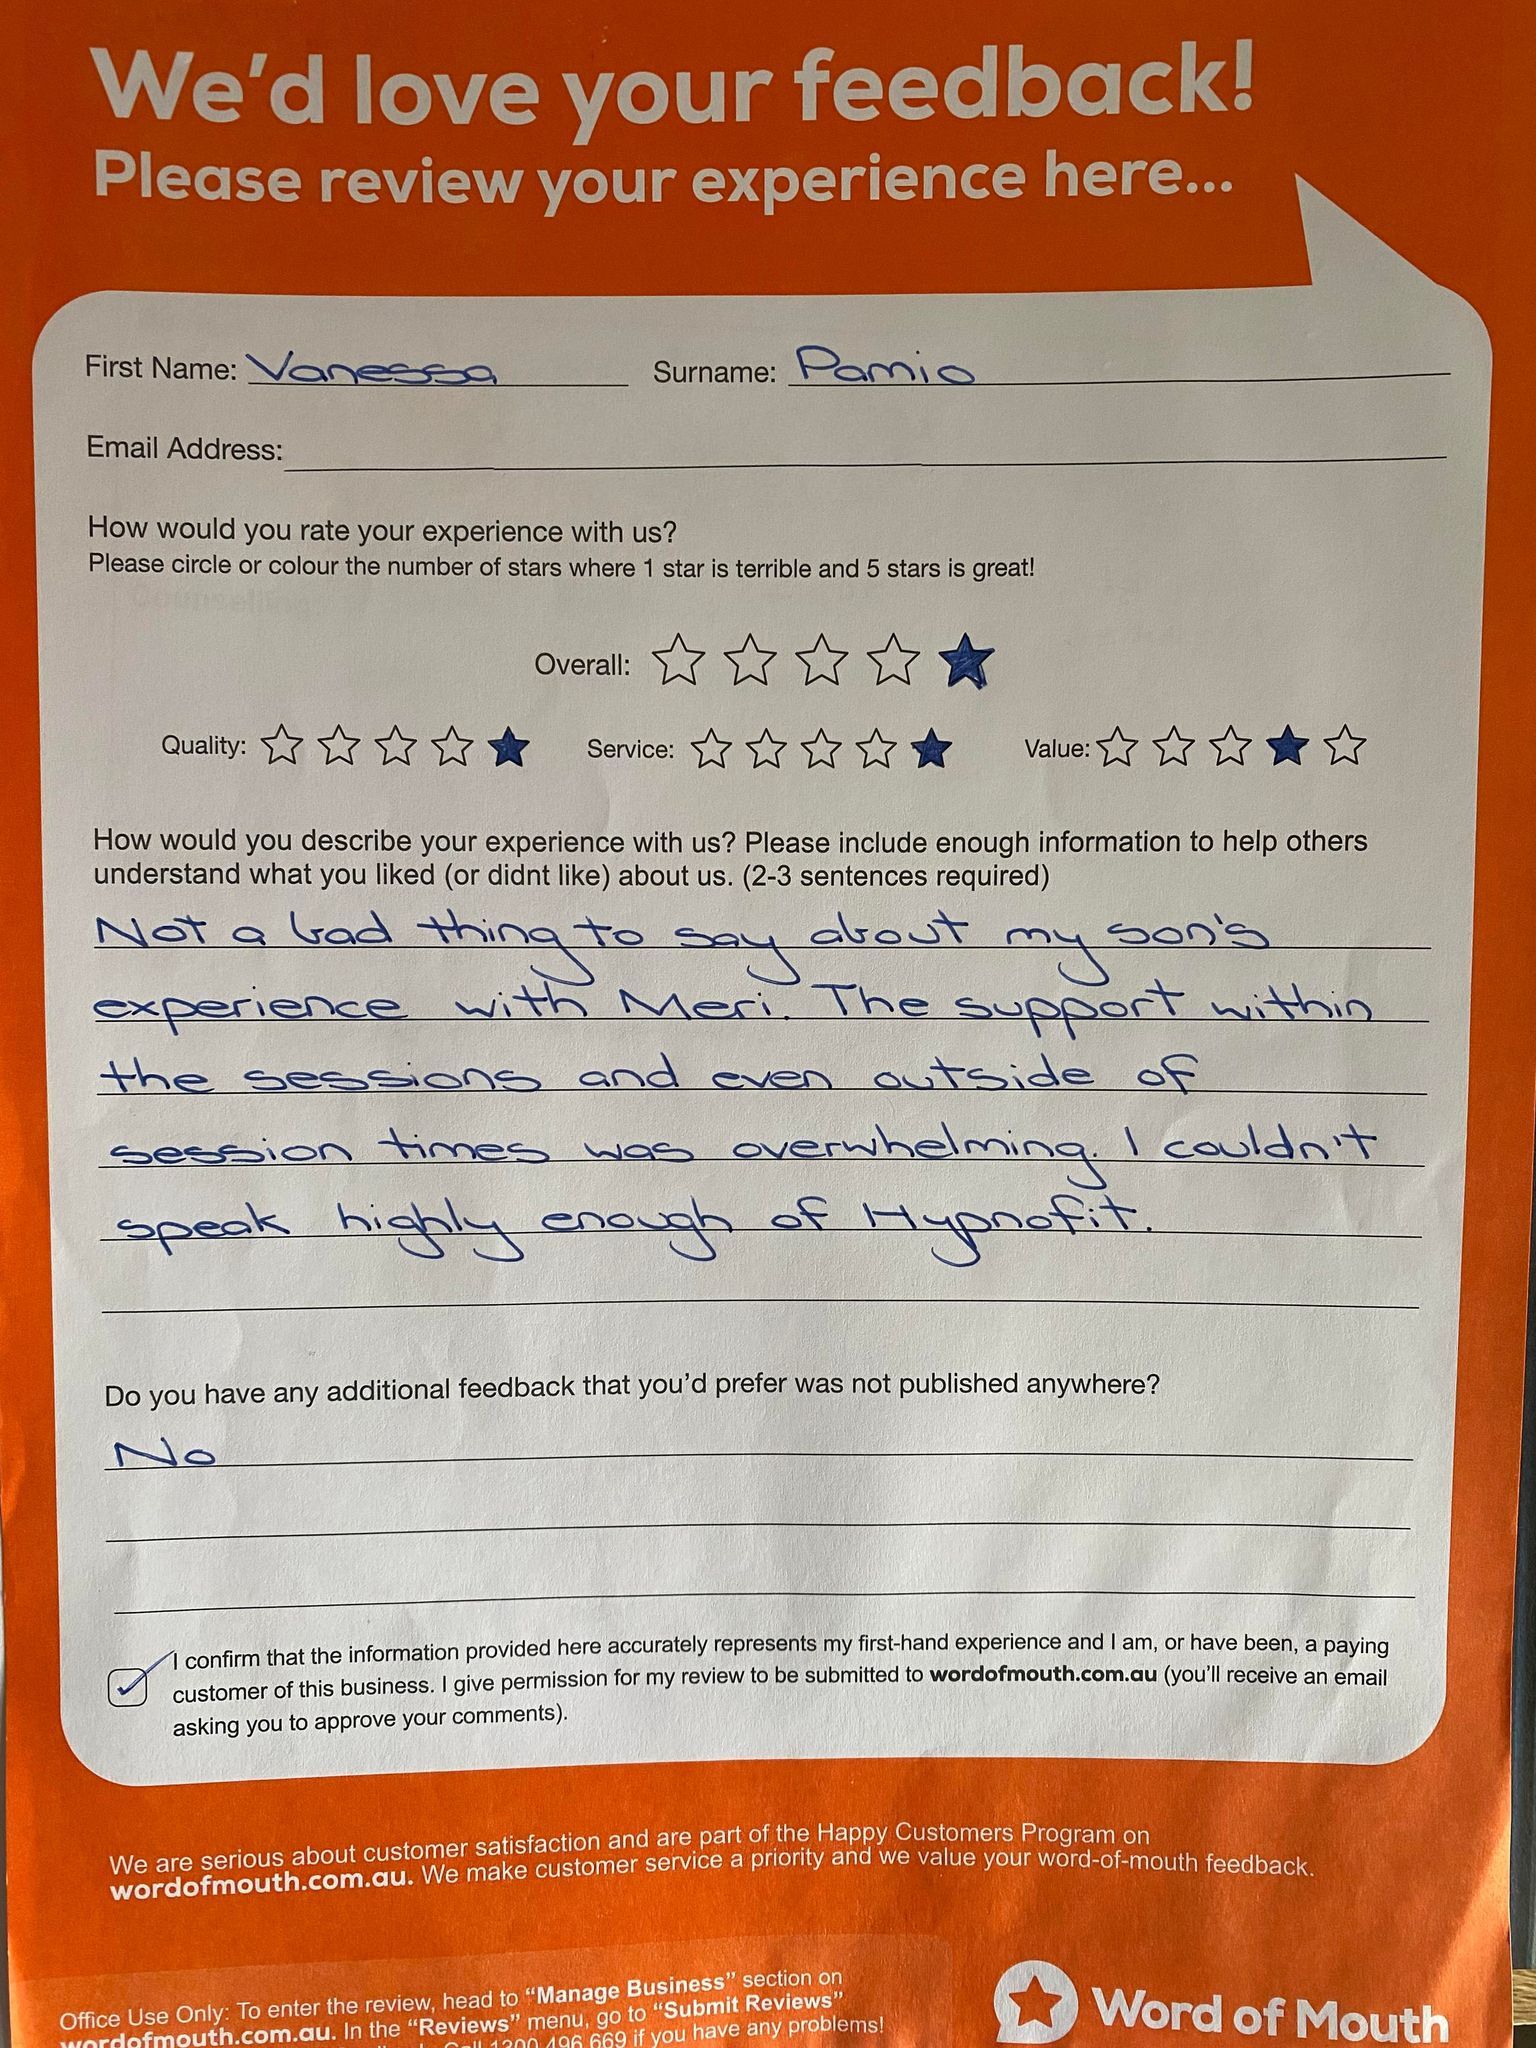 We'd love your feedback!
Please review your experience here...
First Name: Vanessa Surname: Pamio
Email Address:
How would you rate your experience with us?
Please circle or colour the number of stars where 1 star is terrible and 5 stars is great!
Overall:
Quality: Service: Value:
How would you describe your experience with us? Please include enough information to help others
understand what you liked (or didnt like) about us. (2-3 sentences required)
Not a bad thing to say about my son's
experience with Meri. The support within
the sessions and even outside of
session times was overwhelming. I couldn't
speak highly enough of Hypnofit.
Do you have any additional feedback that you'd prefer was not published anywhere?
No
I confirm that the information provided here accurately represents my first-hand experience and I am, or have been, a paying
customer of this business. I give permission for my review to be submitted to wordofmouth.com.au (you'll receive an email
asking you to approve your comments).
We are serious about customer satisfaction and are part of the Happy Customers Program on
wordofmouth.com.au. We make customer service a priority and we value your word-of-mouth feedback.
Office Use Only: To enter the review, head to "Manage Business" section on
wordofmouth.com.au. In the "Reviews" menu, go to "Submit Reviews"
Call 1300 496 669 if you have any problems!
Word of Mouth